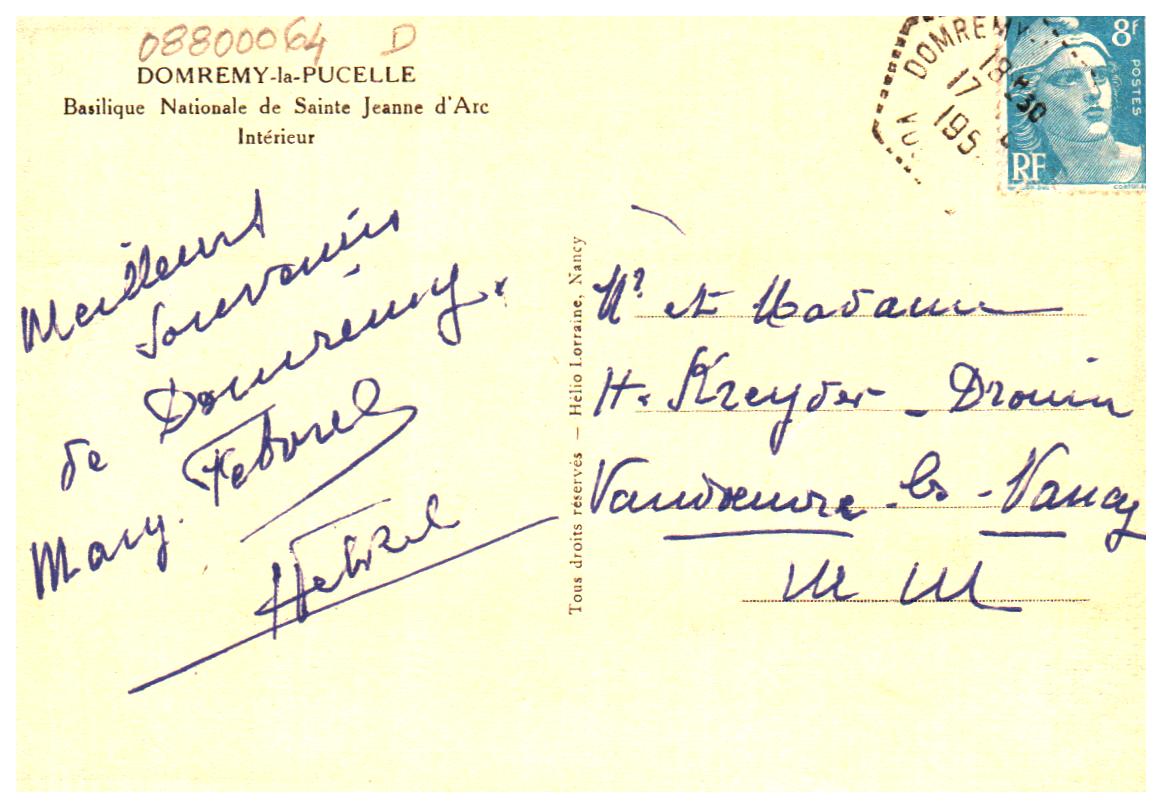 08800064 D
DOMREMY-la-PUCELLE
Basilique Nationale de Sainte Jeanne d'Arc
Intérieur
Meilleurs
Souvenirs
de Domrémy.
Mary.
Tous droits réservés — Hélio Lorraine, Nancy
DOMREMY
18 H 30
17
195
8f
POSTES
RF
Mr et Madame
H. Kreyder - Drouin
Vandoeuvre - les - Nancy
M M